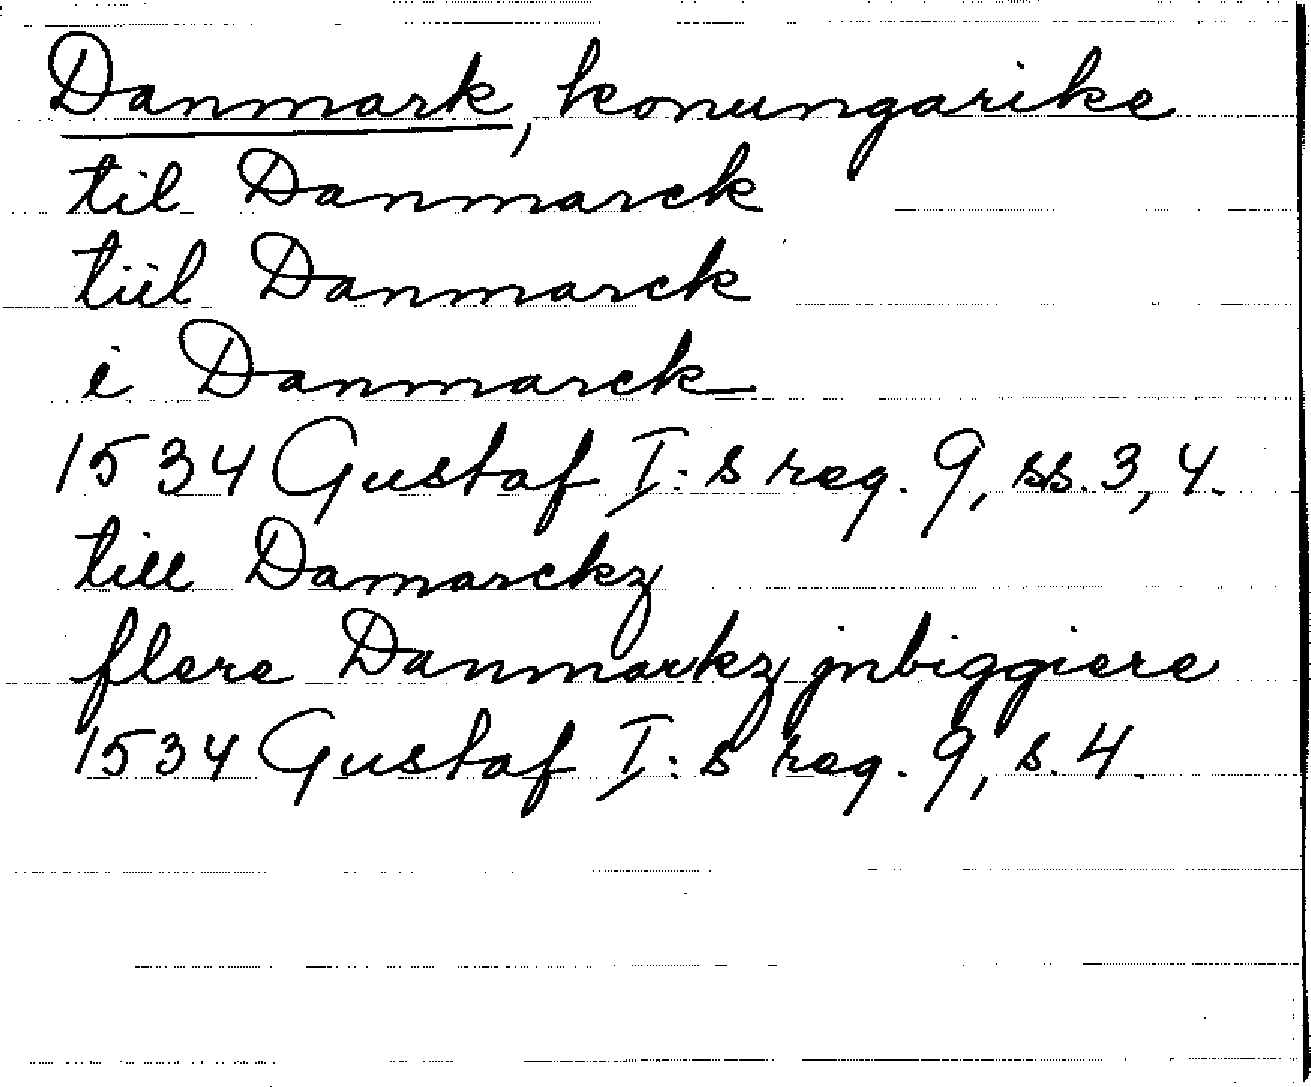 Danmark, konungarike
til Danmarck
tiil Danmarck
i Danmarck
1534 Gustaf I:s reg. 9, ss. 3, 4.
till Damarckz
flere Danmarkz jnbiggiere
1534 Gustaf I:s reg. 9, s. 4.